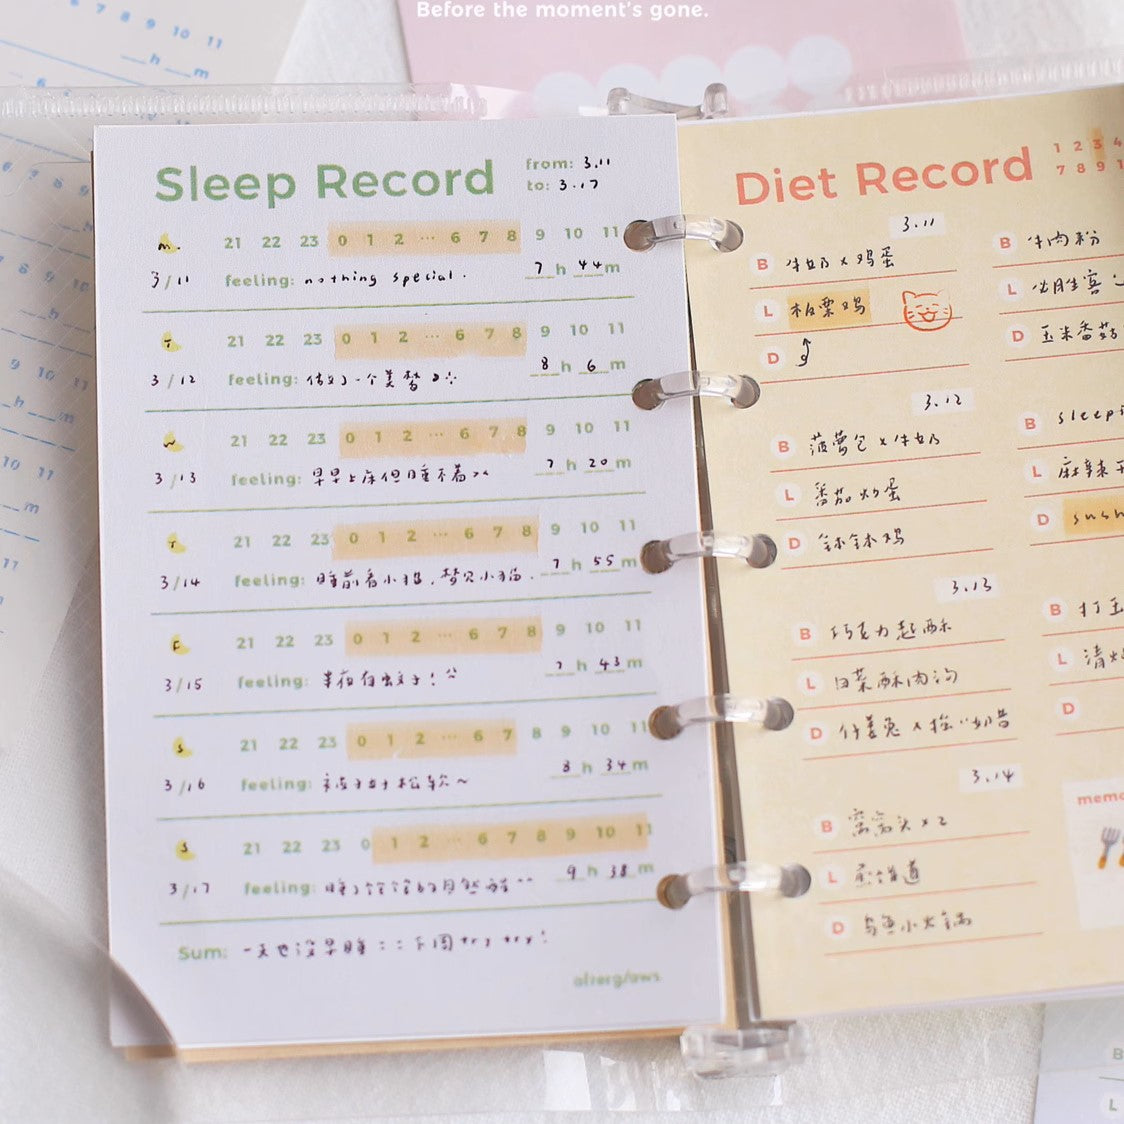 Before the moment's gone.
6 7 8 9 10 11
h m
Sleep Record
from: 3.11
to: 3.17
m. 21 22 23 0 1 2 ... 6 7 8 9 10 11
3/11 feeling: nothing special. 7 h 44 m
T 21 22 23 0 1 2 ... 6 7 8 9 10 11
3/12 feeling: 做了一个美梦 8 h 6 m
W 21 22 23 0 1 2 ... 6 7 8 9 10 11
3/13 feeling: 早早上床但睡不着 7 h 20 m
T 21 22 23 0 1 2 ... 6 7 8 9 10 11
3/14 feeling: 睡前看小猫,梦见小猫. 7 h 55 m
F 21 22 23 0 1 2 ... 6 7 8 9 10 11
3/15 feeling: 半夜有蚊子! 7 h 43 m
S 21 22 23 0 1 2 ... 6 7 8 9 10 11
3/16 feeling: 被子好松软~ 8 h 34 m
S 21 22 23 0 1 2 ... 6 7 8 9 10 11
3/17 feeling: 睡了饱饱的自然醒 9 h 38 m
Sum: 一天也没早睡 下周 try try!
Diet Record
1 2 3 4
7 8 9 1
3.11
B 牛奶 x 鸡蛋
L 板栗鸡
D
3.12
B 菠萝包 x 牛奶
L 番茄炒蛋
D 钵钵鸡
3.13
B 巧克力起酥
L 白菜酥肉汤
D 仔姜兔 x 奶昔
3.14
B 窝窝头 x 2
L 蒸味道
D 乌鱼小火锅
B 牛肉粉
L
D 玉米番茄
B sleepi
L 麻辣
D sush
B 打
L 清炒
D
memo